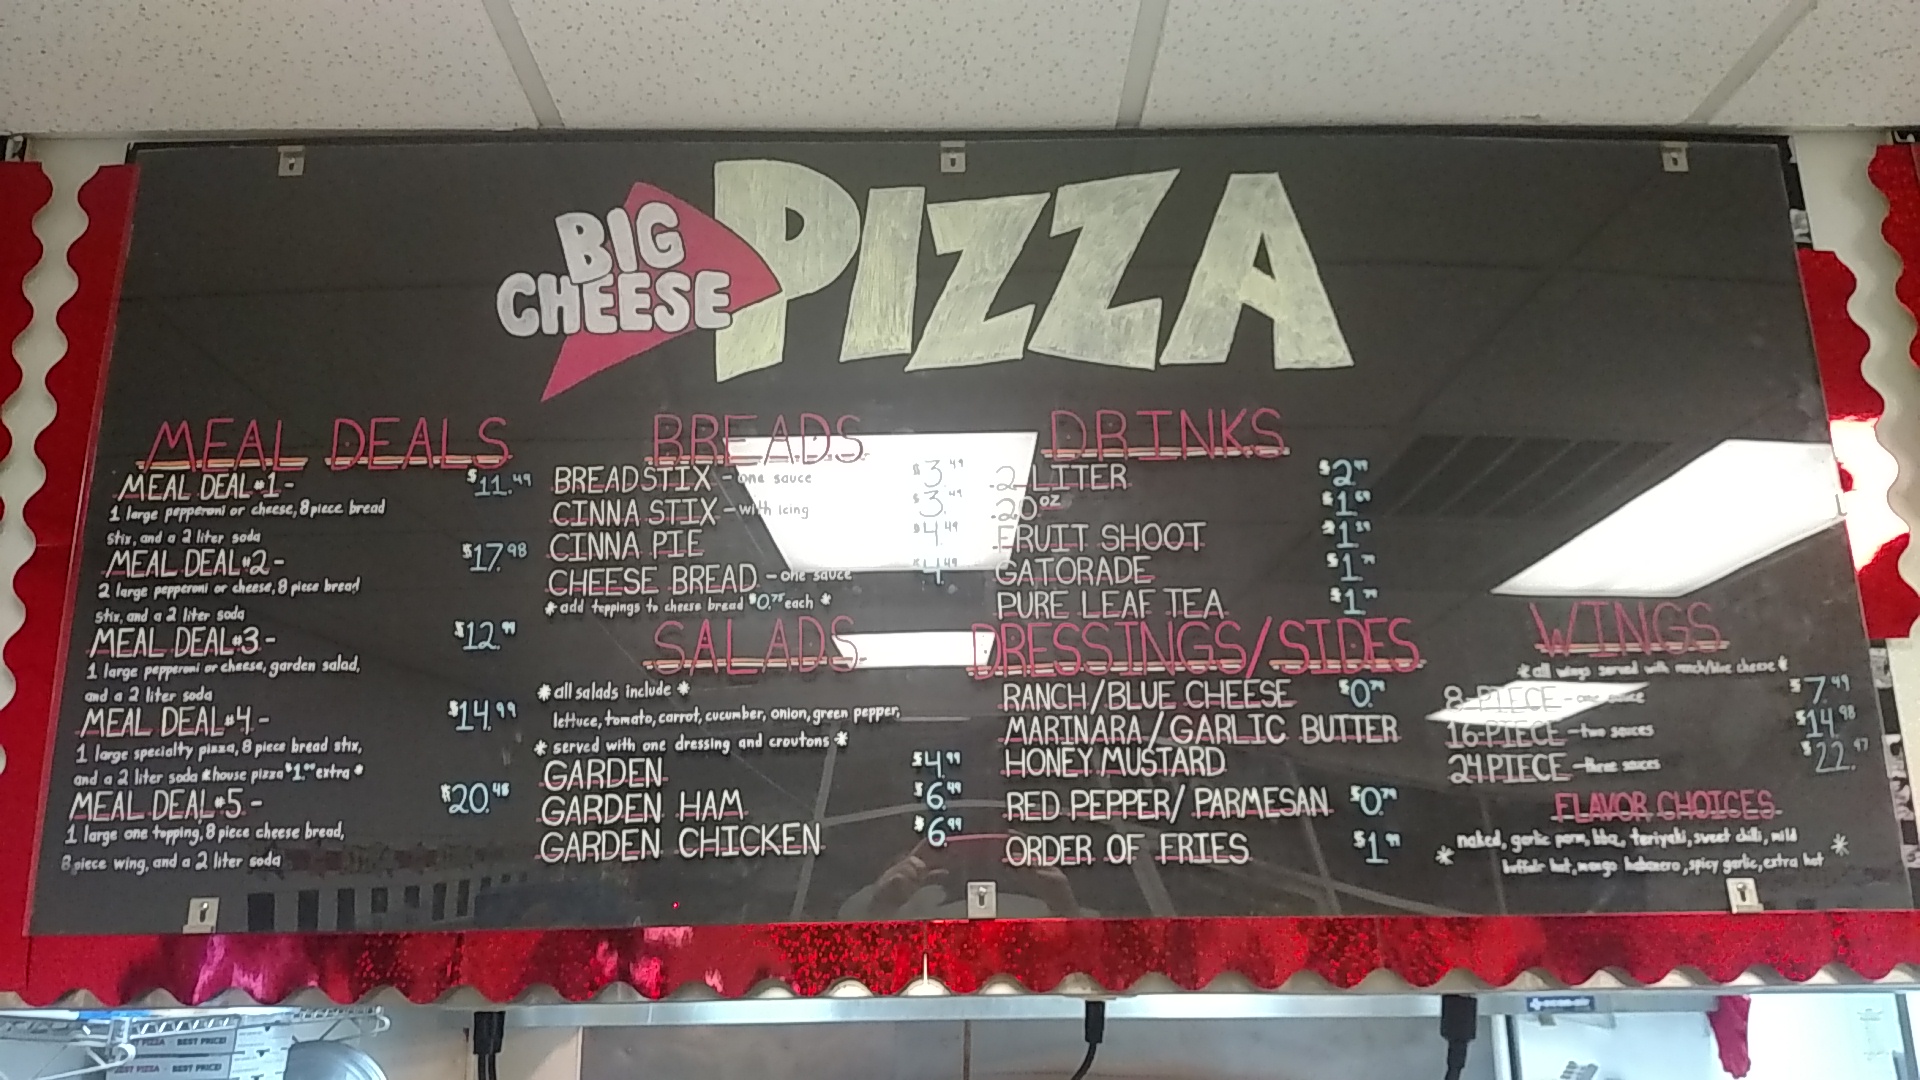 BIG
CHEESE
PIZZA
MEAL DEALS
MEAL DEAL #1 - $11.49
1 large pepperoni or cheese, 8 piece bread
stix, and a 2 liter soda
MEAL DEAL #2 - $17.98
2 large pepperoni or cheese, 8 piece bread
stix, and a 2 liter soda
MEAL DEAL #3 - $12.99
1 large pepperoni or cheese, garden salad,
and a 2 liter soda
MEAL DEAL #4 - $14.99
1 large specialty pizza, 8 piece bread stix,
and a 2 liter soda *house pizza $1.00 extra*
MEAL DEAL #5 - $20.48
1 large one topping, 8 piece cheese bread,
8 piece wing, and a 2 liter soda
BREADS
BREADSTIX - one sauce $3.49
CINNA STIX - with icing $3.49
CINNA PIE $4.49
CHEESE BREAD - one sauce $4.49
* add toppings to cheese bread $0.75 each *
SALADS
* all salads include *
lettuce, tomato, carrot, cucumber, onion, green pepper,
* served with one dressing and croutons *
GARDEN $4.99
GARDEN HAM $6.99
GARDEN CHICKEN $6.99
DRINKS
2 LITER
20 oz $1.69
FRUIT SHOOT
GATORADE
PURE LEAF TEA
DRESSINGS/SIDES
RANCH/BLUE CHEESE $0.79
MARINARA/GARLIC BUTTER
HONEY MUSTARD
RED PEPPER/PARMESAN $0.79
ORDER OF FRIES
WINGS
* all wings served with ranch/blue cheese *
8-PIECE - one sauce $7.49
16-PIECE - two sauces $14.98
24 PIECE - three sauces $22.47
FLAVOR CHOICES
* naked, garlic parm, bbq, teriyaki, sweet chili, mild
buffalo hot, mango habanero, spicy garlic, extra hot *
PIZZA - BEST PRICE!
BEST PIZZA - BEST PRICE!